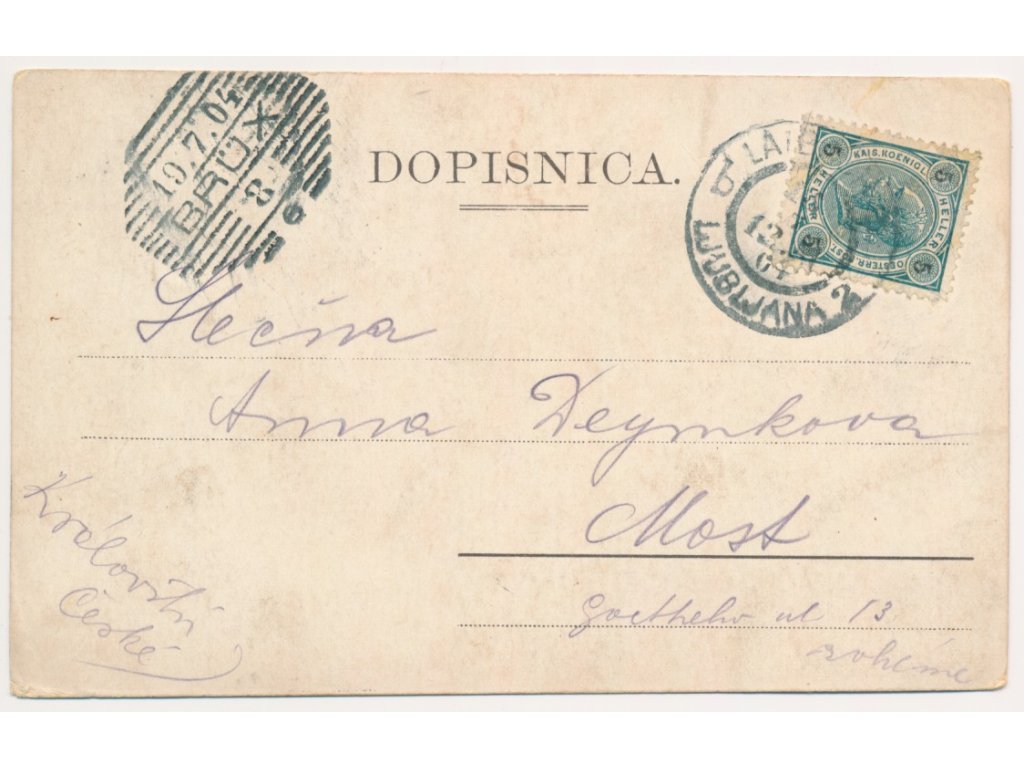 19.7.04
BRÜX
8
DOPISNICA.
LAIB
LJUBLJANA 2
12
04
KAIS. KOENIGL.
OESTERR. POST.
5 HELLER 5
5 HELLER 5
Slečna
Anna Deymkova
Most
Goetheho ul 13
Bohéme
Královstvi
České